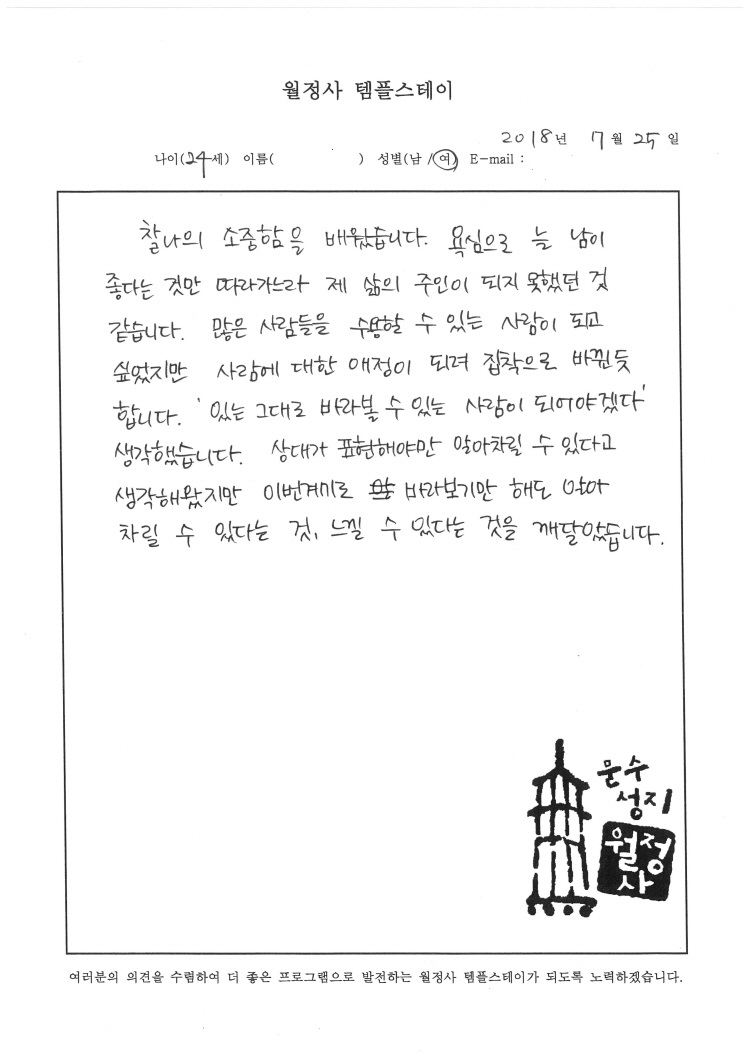 월정사 템플스테이
2018년 7월 25일
나이(24세) 이름( ) 성별(남 /여) E-mail :
찰나의 소중함을 배웠습니다. 욕심으로 늘 남이
좋다는 것만 따라가느라 제 삶의 주인이 되지 못했던 것
같습니다. 많은 사람들을 수용할 수 있는 사람이 되고
싶었지만 사람에 대한 애정이 되려 집착으로 바뀐듯
합니다. '있는 그대로 바라볼 수 있는 사람이 되어야겠다'
생각했습니다. 상대가 표현해야만 알아차릴 수 있다고
생각해왔지만 이번계기로 바라보기만 해도 알아
차릴 수 있다는 것, 느낄 수 있다는 것을 깨달았습니다.
문수
성지
월정
사
여러분의 의견을 수렴하여 더 좋은 프로그램으로 발전하는 월정사 템플스테이가 되도록 노력하겠습니다.